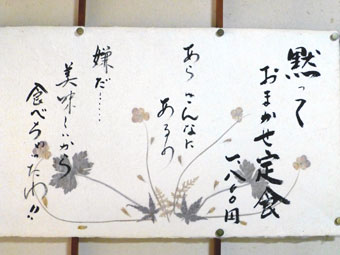 黙って
おまかせ定食
一八〇〇円
あら こんなに
あるの
嫌だ……
美味しいから
食べちゃったわ!!